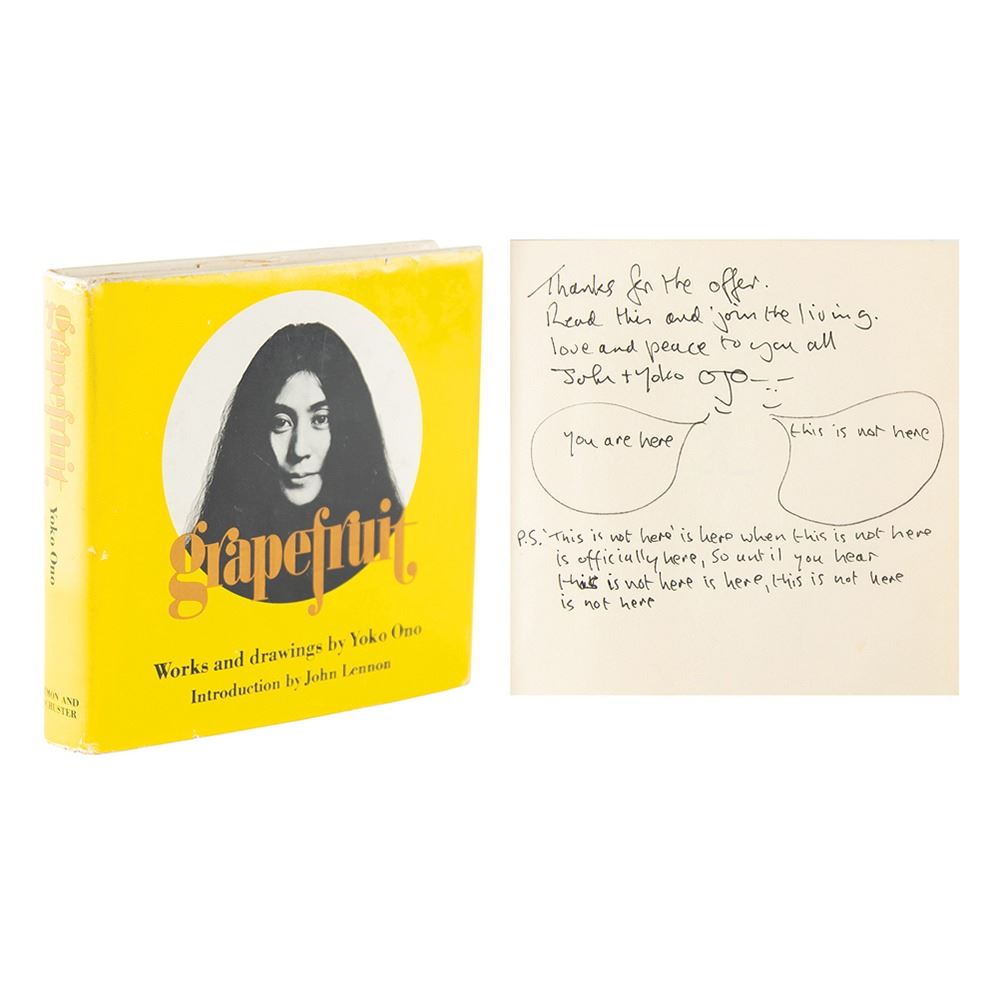 grapefruit
Yoko Ono
SIMON AND
SCHUSTER
grapefruit
Works and drawings by Yoko Ono
Introduction by John Lennon
Thanks for the offer.
Read this and join the living.
love and peace to you all
John + Yoko
you are here
this is not here
P.S. 'This is not here' is here when this is not here
is officially here, So until you hear
this is not here is here, this is not here
is not here